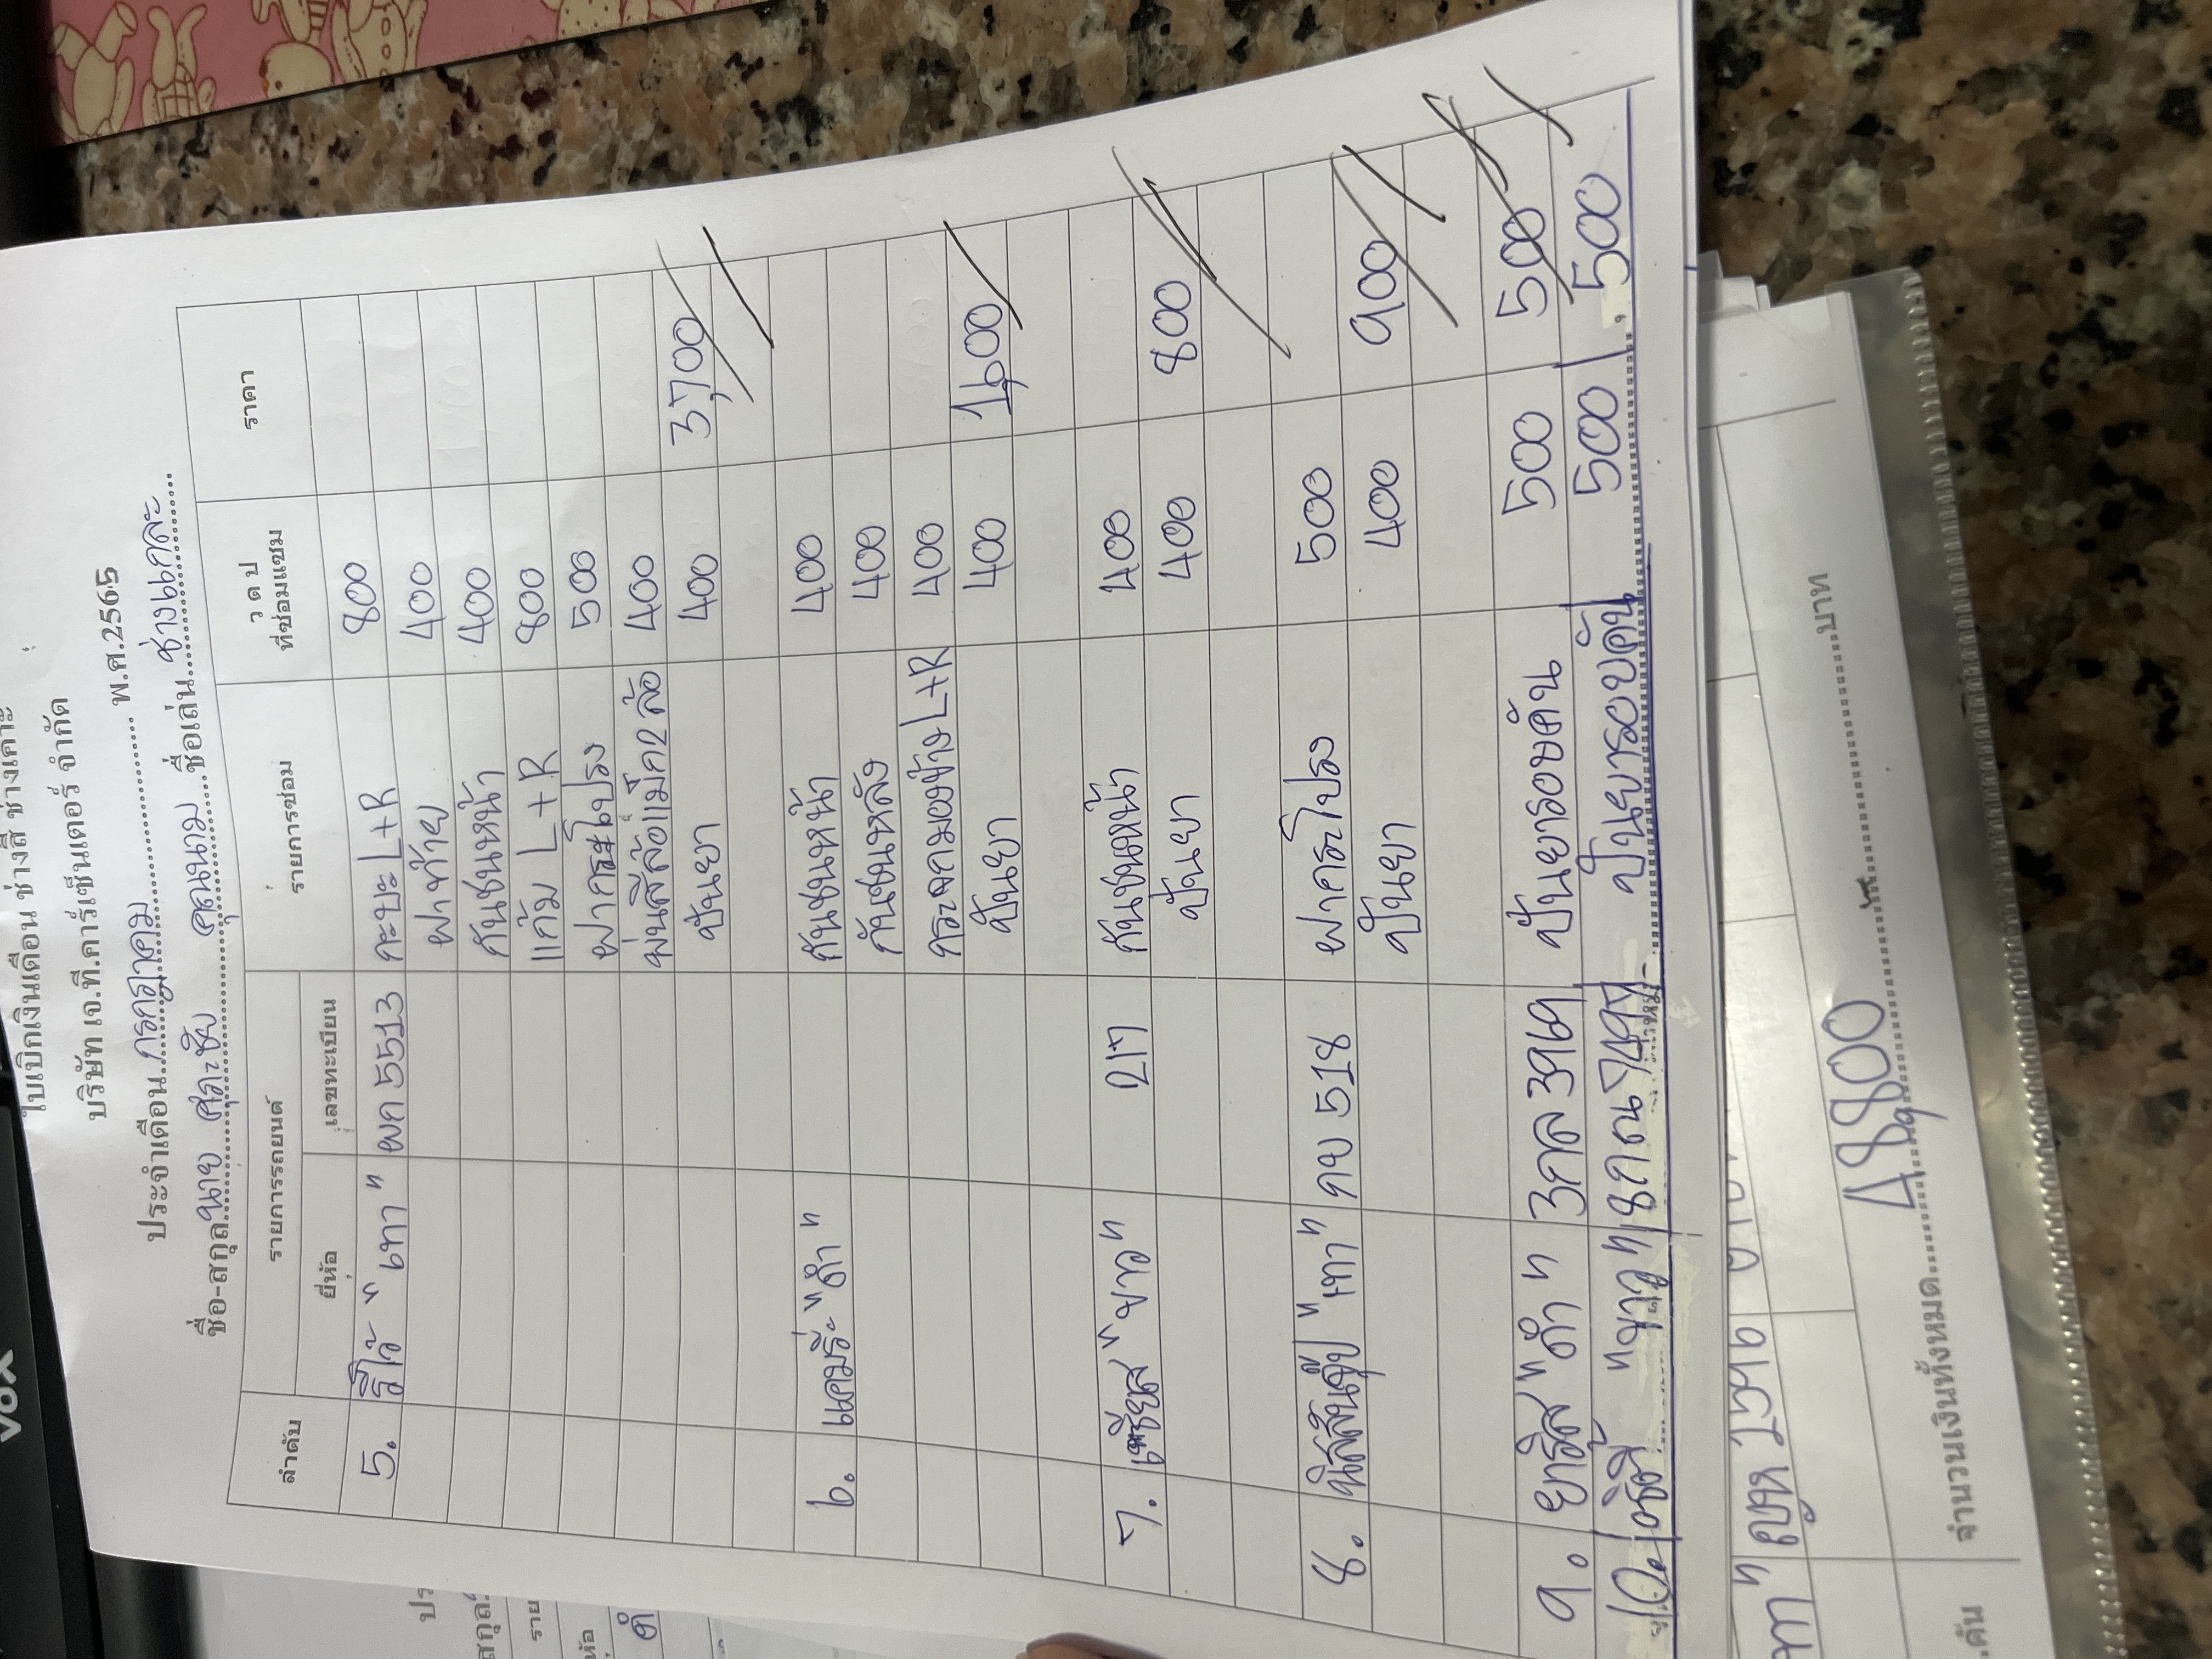 ใบเบิกเงินเดือน ช่างสี ช่างเคาะ
บริษัท เจ.ที.คาร์เซ็นเตอร์ จำกัด
ประจำเดือน กรกฎาคม พ.ศ.2565
ชื่อ-สกุล นาย คุณนาม ชื่อเล่น ช่างแกละ
ลำดับ รายการรถยนต์ รายการซ่อม ว ด ป ที่ซ่อมแซม ราคา
ยี่ห้อ เลขทะเบียน
5. รีโว้ "เทา" ผก 5513 กะบะ L+R 800
ฝาท้าย 400
กันชนหน้า 400
แก้ม L+R 800
ฝากระโปรง 500
พ่นสีล้อแม็ก 2 ล้อ 400
ปั่นยา 400 3,700
6. แคมรี่ "ดำ" กันชนหน้า 400
กันชนหลัง 400
กระจกมองข้าง L+R 400
ปั่นยา 400 1,600
7. "ขาว" 217 กันชนหน้า 400
ปั่นยา 400 800
8. "เทา" กบ 518 ฝากระโปรง 500
ปั่นยา 400 900
9. ยาริส "ดำ" 3กล 3969 ปั่นยารอบคัน 500 500
10. "ขาว" 8กณ ปั่นยารอบคัน 500 500
1596
จำนวนเงินทั้งหมด บาท
VOX